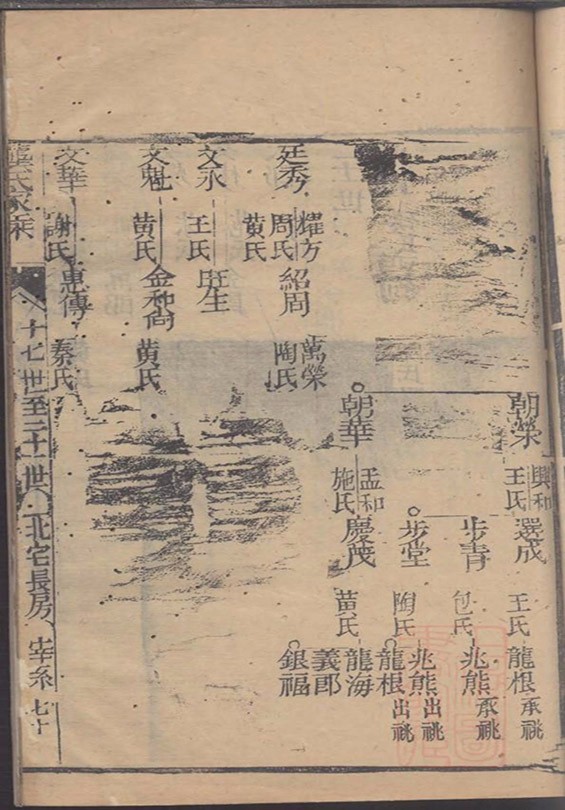 朝榮
興和
王氏
選成
王氏
龍根承祧
步青
包氏
兆熊承祧
步堂
陶氏
兆熊出祧
龍根出祧
朝華
孟和
施氏
慶茂
苗氏
龍海
義郎
銀福
廷秀
耀方
周氏
黄氏
紹周
萬榮
陶氏
文永
王氏
旺生
文魁
黄氏
金和尚
黄氏
文華
謝氏
惠傳
秦氏
氏家乘
十七世至二十一世
北宅長房
宰系
七十